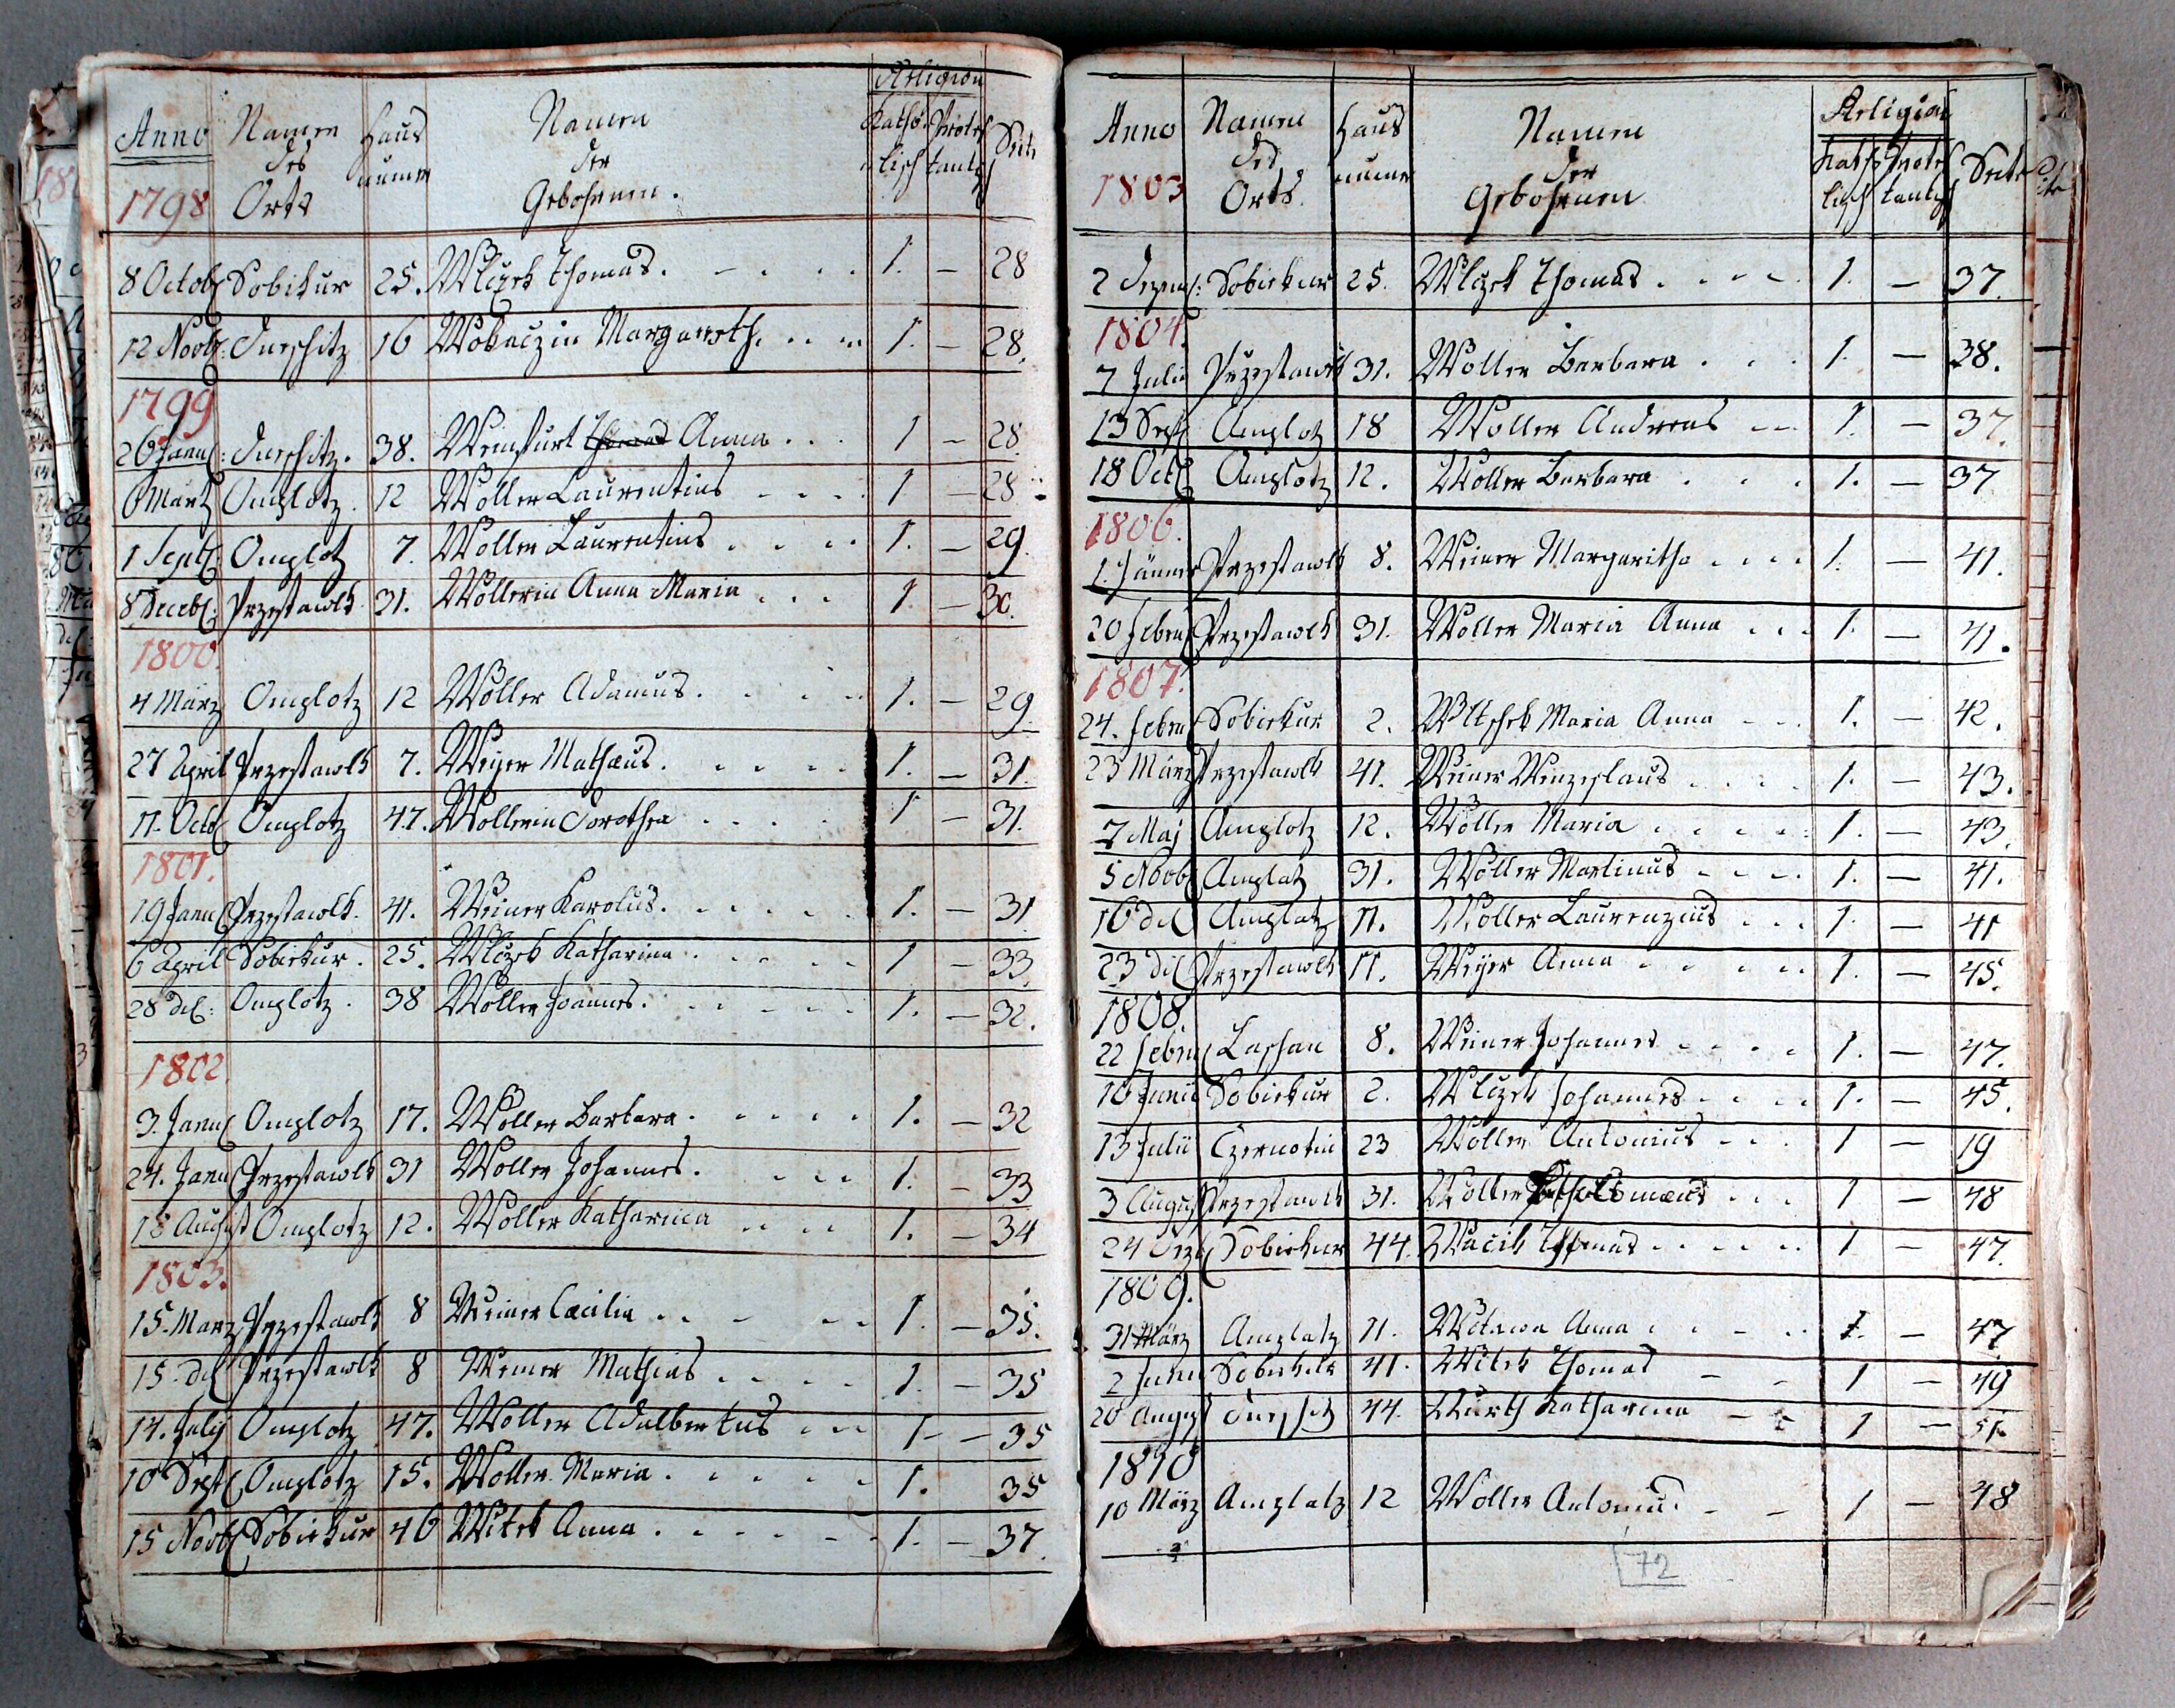 Religion
Anno Namen Haus Namen Katho Protes Seite
des numer der lisch tantisch
1798 Orts Gebohrnen.
8 Octob Sobiekur 25. Wlczek Thomas. 1. — 28
12 Novb: Dneschitz 16 Wokaczin Margareth. 1. — 28.
1799
26 Janu: Dneschitz. 38. Weinfurt Thomas Anna 1 — 28.
6 Martz Omplotz. 12 Woller Laurentius 1 — 28
1 Septb Omplotz 7. Woller Laurentius 1. — 29.
8 Deceb: Przestawlk 31. Wollerin Anna Maria 1. — 30.
1800.
4 März Omplotz 12 Woller Adamus. 1. — 29
27 April Przestawlk 7. Weyer Mathæus. 1. — 31.
11. Octo Omplotz 47. Wollerin Dorothea 1 — 31.
1801.
19 Janu Przestawlk. 41. Weiner Karolus. 1. — 31
6 April Sobiekur. 25. Wlczek Katharina 1 — 33.
28 del: Omplotz. 38 Woller Joannes. 1. — 32.
1802.
3. Janu Omplotz 17. Woller Barbara. 1. — 32
24. Janu Przestawlk 31 Woller Johannes. 1. — 33
18 August Omplotz 12. Woller Katharina 1. — 34
1803.
15. März Przestawlk 8 Weiner Cæcilia 1. — 35.
15. del Przestawlk 8 Weiner Mathias 1. — 35
14. July Omplotz 47. Woller Adalbertus 1. — 35
10 Sept Omplotz 15. Woller Maria. 1. 35
15 Novb Sobiekur 46 Witek Anna. 1. — 37.
Religion
Anno Namen Haus Namen Katho Protes Seite
des numer der lisch tantisch
1803 Orts Gebohrnen
2 Dezem: Sobiekur 25. Wlczek Thomas 1. — 37.
1804.
7 Julii Przestawlk 31. Woller Barbara 1. — 38.
13 Sept Amplotz 18 Woller Andreas 1. — 37.
18 Oct Amplotz 12. Woller Barbara 1. — 37
1806.
1. Jänner Przestawlk 8. Weiner Margaritha 1. — 41.
20 Febru Przestawlk 31. Woller Maria Anna 1. — 41.
1807.
24. Febru Sobiekur 2. Wltschek Maria Anna 1. — 42.
23 März Przestawlk 41. Weiner Wenzeslaus 1. — 43.
7 Maj Amplotz 12. Woller Maria 1. — 43.
5 Novb Amplatz 31. Woller Martinus 1. — 41.
16 del Amplatz 11. Woller Laurenzius 1. — 41
23 del Przestawlk 11. Weyer Anna 1. — 45.
1808.
22 Febru Laschau 8. Weiner Johannes 1. — 47.
10 Junii Sobiekur 2. Wlczek Johannes 1. — 45.
13 Julii Czernotin 23 Woller Antonius 1 — 19
3 August Przestawlk 31. Woller 1 — 48
24 Sobiekur 44. Wacik Thomas 1 — 47.
1809.
31 März Amplatz 11. Witawa Anna 1. — 47
2 Junii Sobiekur 41. Witek Thomas 1 — 49
20 Augus Dneschitz 44. Wurth Katharina 1 — 51.
1810
10 März Amplatz 12 Woller Antonius 1 — 48
72